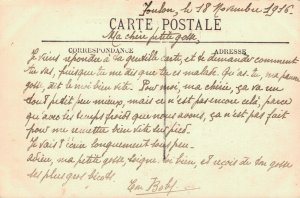 Toulon, le 18 Novembre 1916.
CARTE POSTALE
Ma chère petite gosse,
CORRESPONDANCE ADRESSE
Je viens répondre à ta gentille carte, et te demande comment
tu vas, puisque tu me dis que tu es malade. Qu'as-tu, ma pauvre
gosse, dit le moi bien vite. Pour moi, ma chérie, ça va un
tout petit peu mieux, mais ce n'est pas encore cela, parce
qu'avec les temps froids que nous avons, ça n'est pas fait
pour me remettre bien vite sur pied.
Je vais t'écrire longuement sous peu.
Adieu, ma petite gosse, soigne toi bien, et reçois de ton gosse
ses plus gros bécots.
Ton Bob